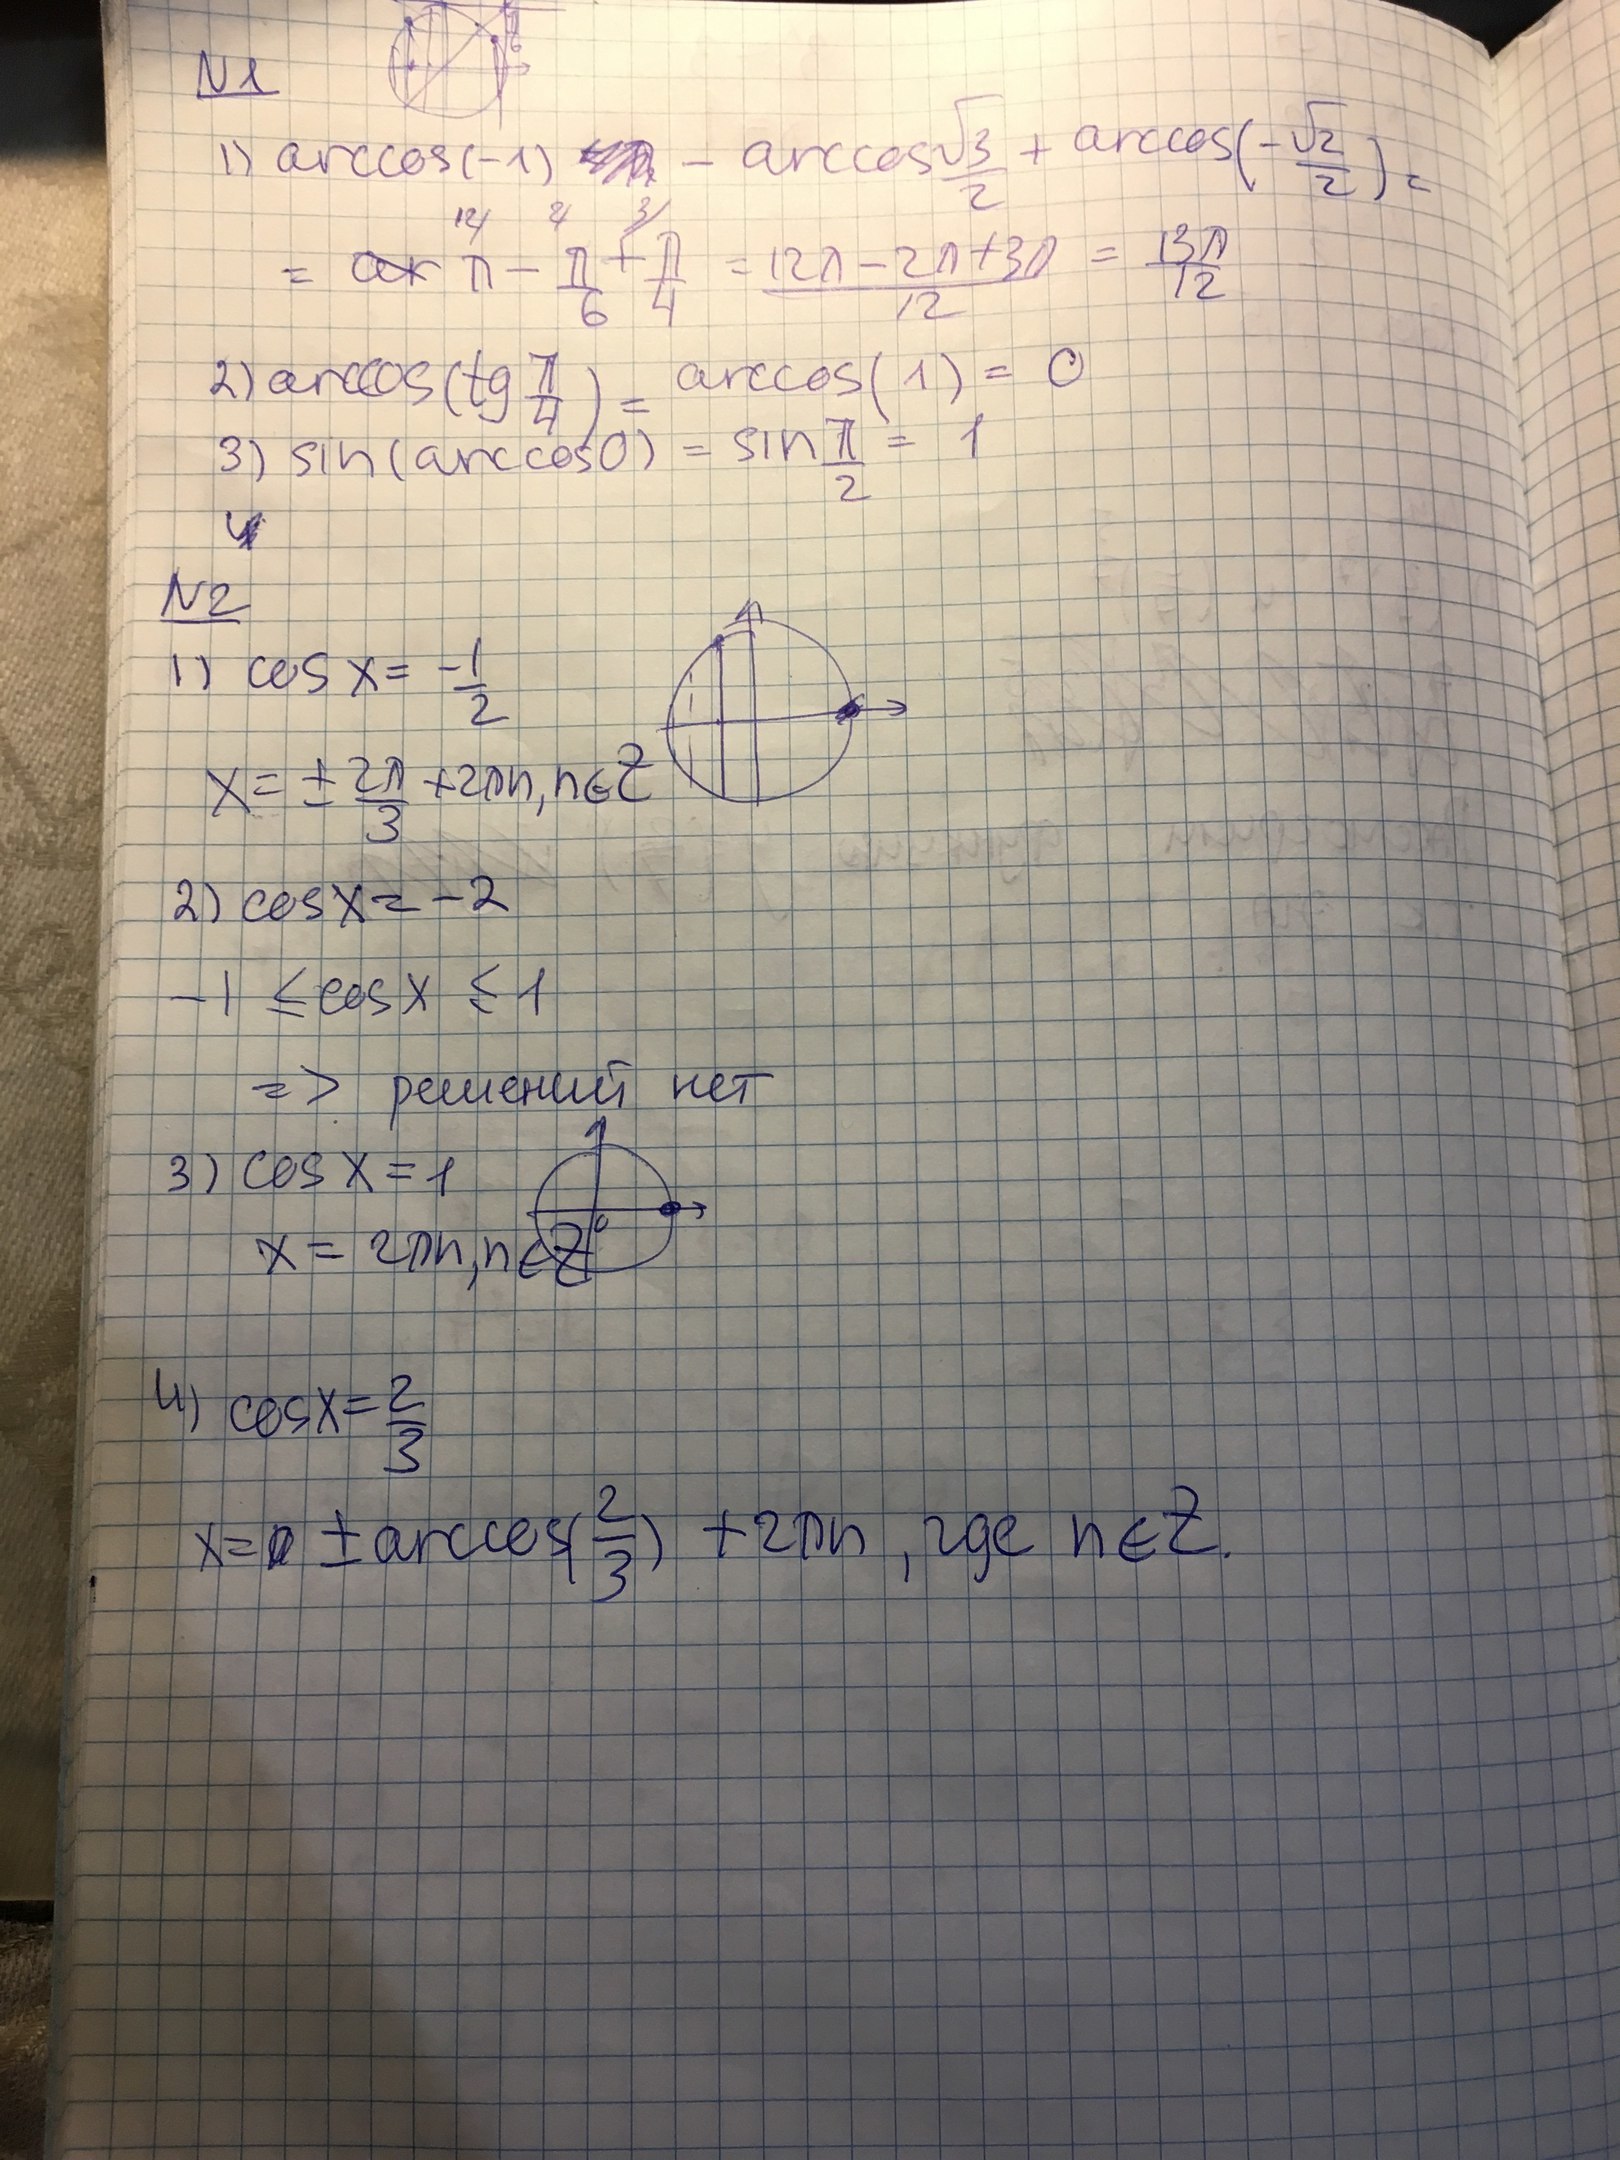 N1
1) arccos(-1) - arccos √3/2 + arccos(-√2/2) =
12/ 2/ 3/
= π - π/6 + π/4 = (12π - 2π + 3π)/12 = 13π/12
2) arccos(tg π/4) = arccos(1) = 0
3) sin(arccos0) = sin π/2 = 1
N2
1) cos x = -1/2
x = ± 2π/3 + 2πn, n∈Z
2) cosx = -2
-1 ≤ cosx ≤ 1
=> решений нет
3) cosx = 1
x = 2πn, n∈Z
4) cosx = 2/3
x = ± arccos(2/3) + 2πn, где n∈Z.